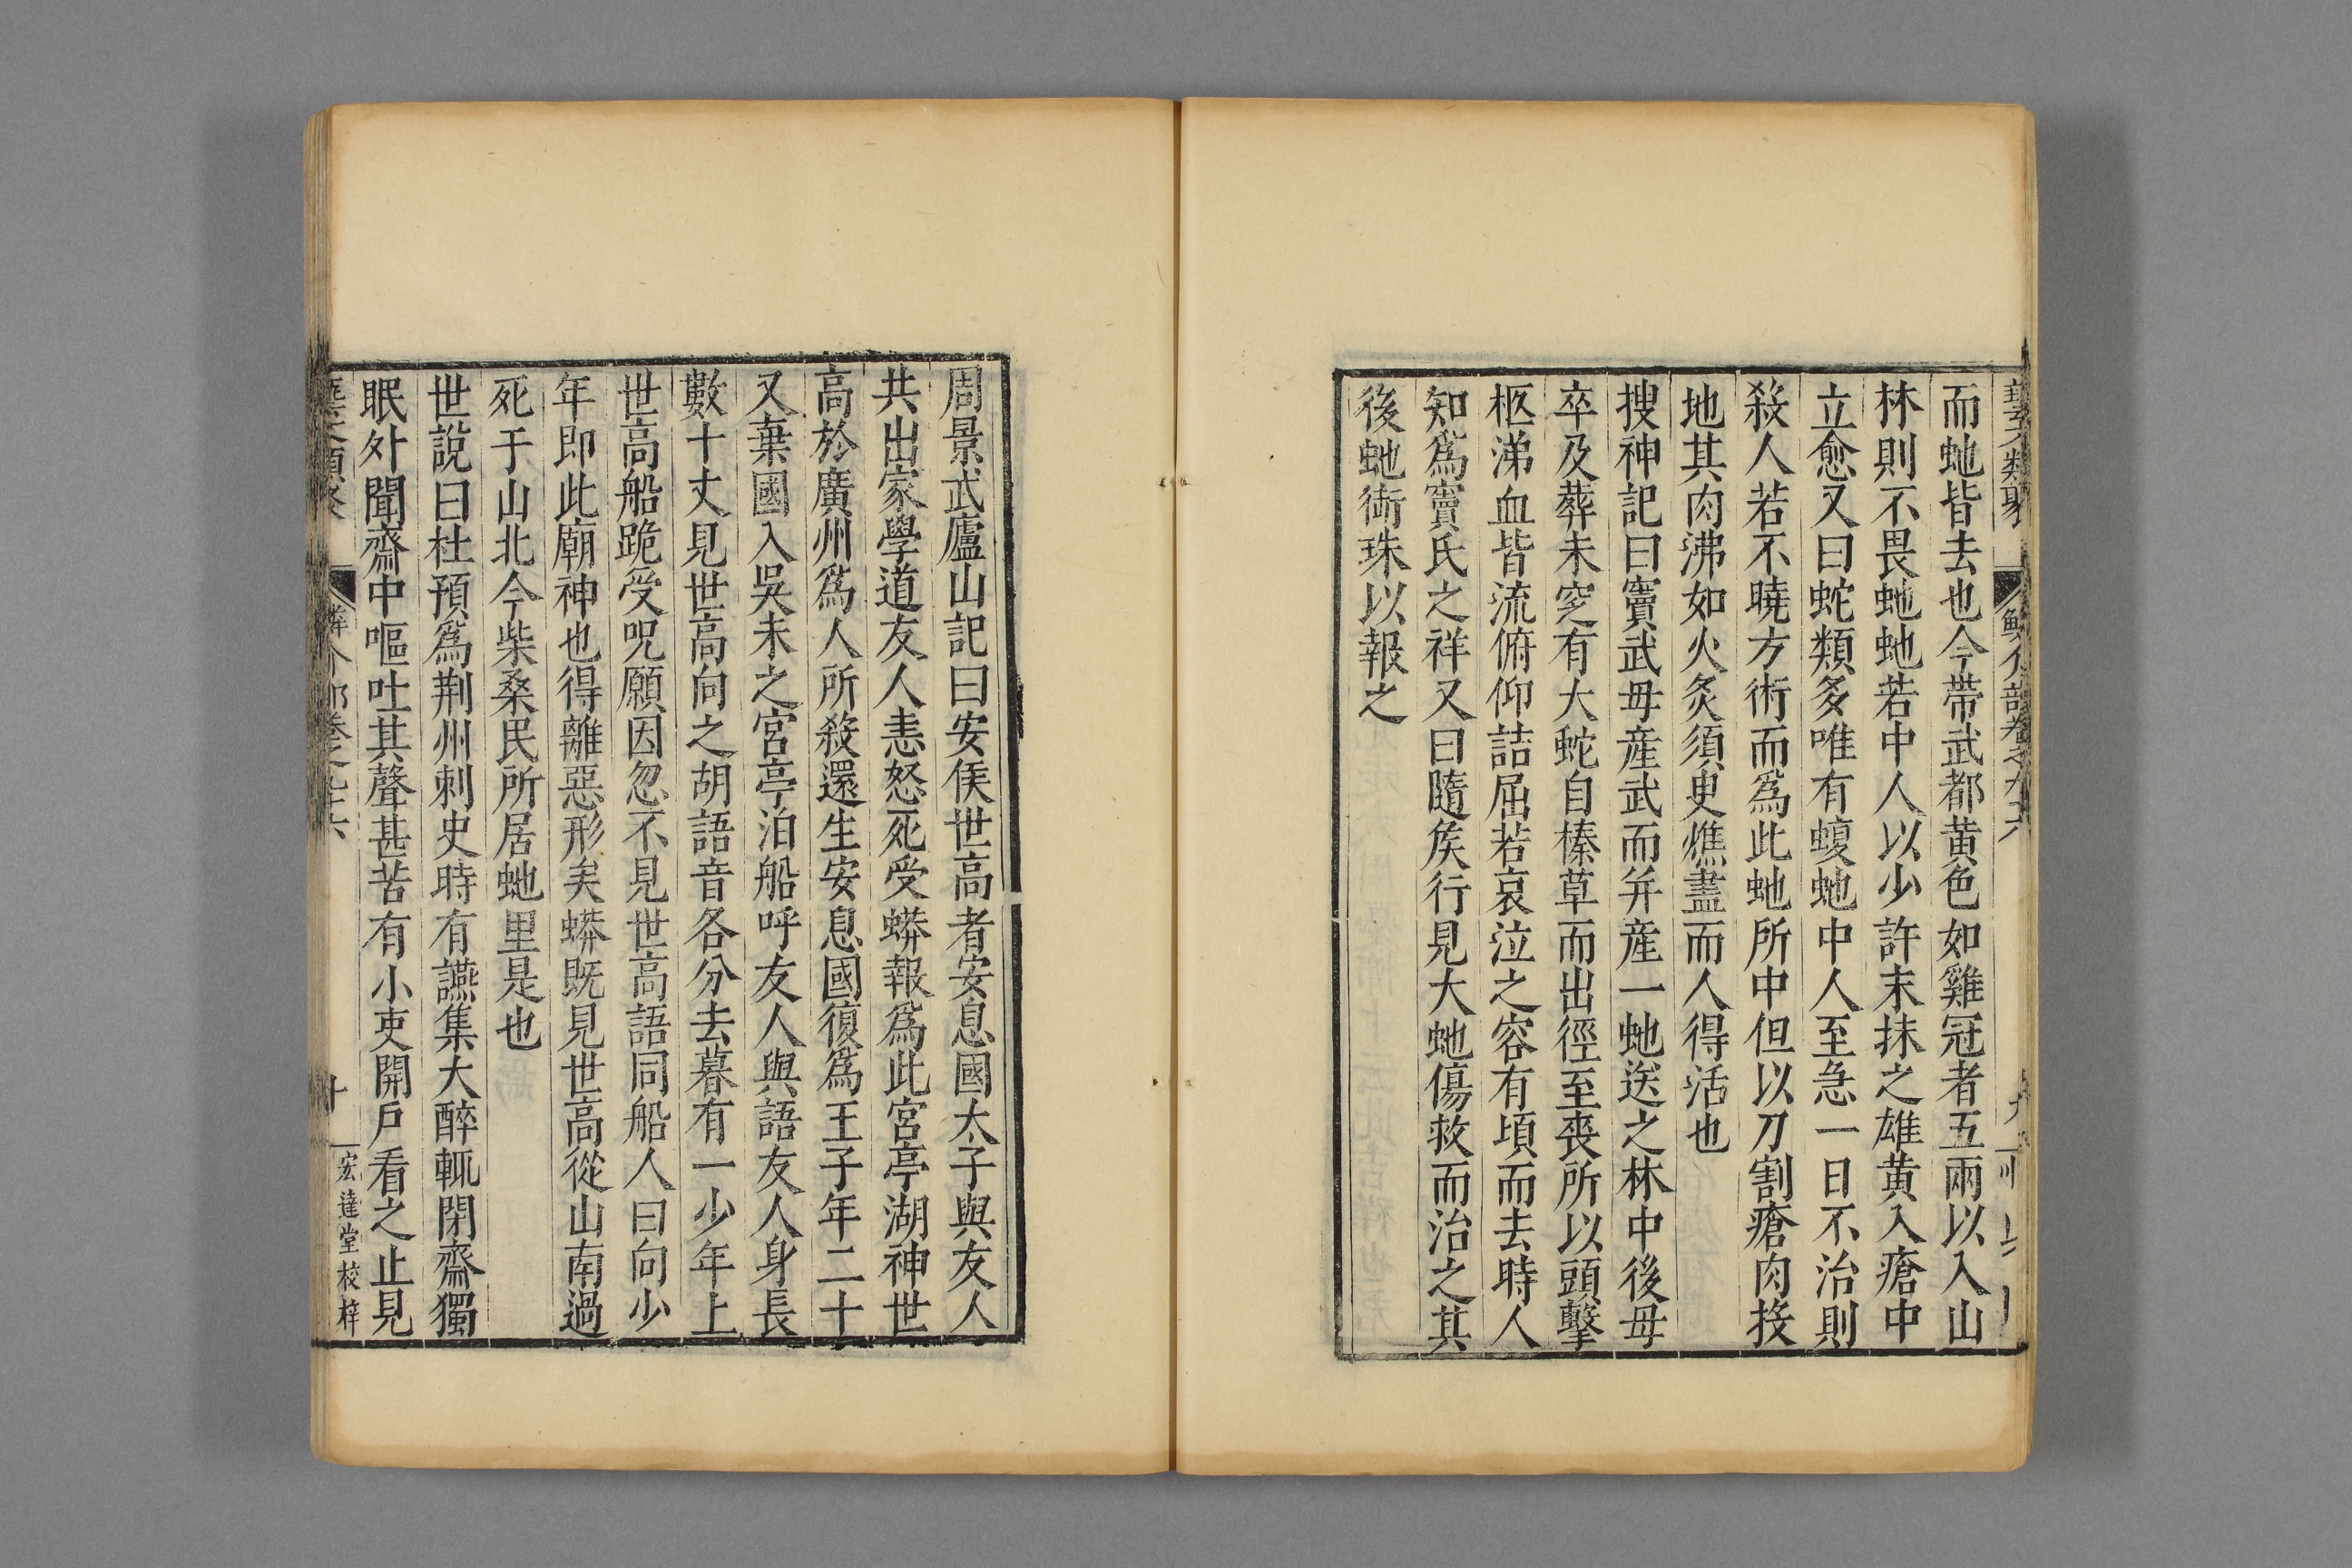 藝文類聚 鱗介部卷之九六
而虵皆去也今帶武都黃色如雞冠者五兩以入山
林則不畏虵虵若中人以少許末抹之雄黃入瘡中
立愈又曰蛇類多唯有蝮虵中人至急一日不治則
殺人若不曉方術而爲此虵所中但以刀割瘡肉投
地其肉沸如火炙須臾燋盡而人得活也
搜神記曰竇武母産武而并産一虵送之林中後母
卒及葬未窆有大蛇自榛草而出徑至喪所以頭擊
柩涕血皆流俯仰詰屈若哀泣之容有頃而去時人
知爲竇氏之祥又曰隨矦行見大虵傷救而治之其
後虵銜珠以報之
周景武廬山記曰安侯世高者安息國太子與友人
共出家學道友人恚怒死受蟒報爲此宮亭湖神世
高於廣州爲人所殺還生安息國復爲王子年二十
又棄國入吳未之宮亭泊船呼友人與語友人身長
數十丈見世高向之胡語音各分去暮有一少年上
世高船跪受呪願因忽不見世高語同船人曰向少
年即此廟神也得離惡形矣蟒既見世高從山南過
死于山北今柴桑民所居虵里是也
世說曰杜預爲荆州刺史時有讌集大醉輒閉齋獨
眠外聞齋中嘔吐其聲甚苦有小吏開戶看之止見
鱗介部卷之九六 十 宏達堂校梓